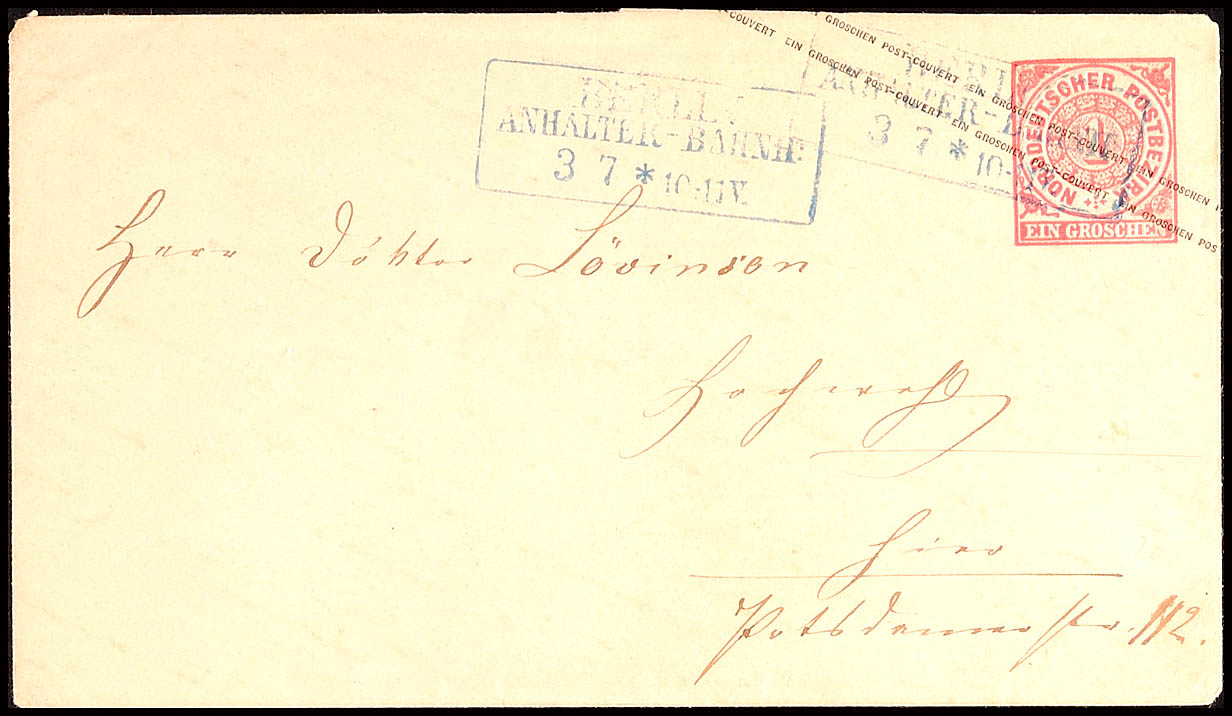 BERLIN
ANHALTER-BAHNH:
3 7 * 10-11V.
BERLIN
ANHALTER-BAHNH:
3 7 * 10-
COUVERT EIN GROSCHEN POST-COUVERT EIN GROSCHEN POST-COUVERT EIN GROSCHEN POST-COUVERT EIN GROSCHEN POS
GROSCHEN POST-COUVERT EIN GROSCHEN POST-COUVERT EIN GROSCHEN
NORDDEUTSCHER POSTBEZIRK
1
EIN GROSCHEN
Herr Doktor Lövinson
Hier
Potsdamerstr. 112.